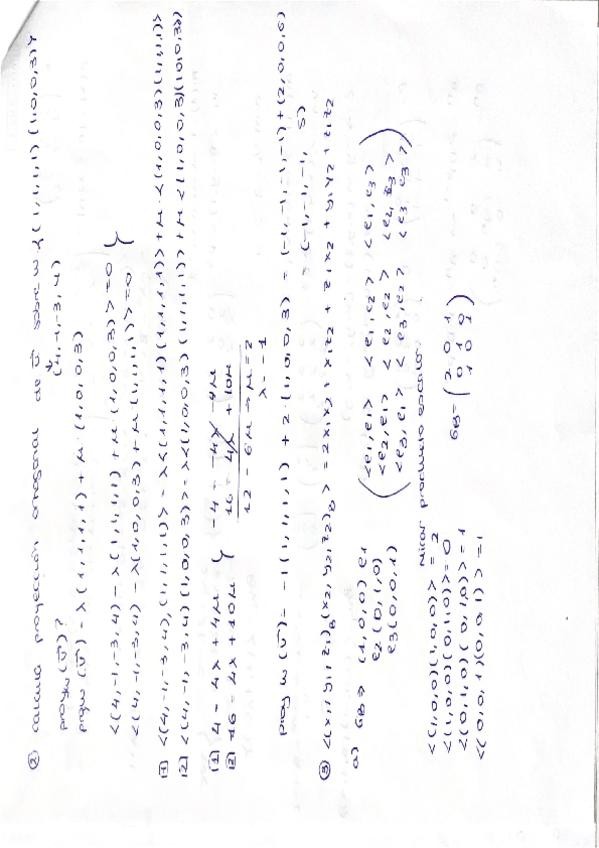 ② calcula proyección ortogonal de ū sobre W { (1,1,1,1) (1,0,0,3) }
proyw (ū)? (4,-1,-3,4)
proyw (ū) = λ(1,1,1,1) + μ·(1,0,0,3)
<(4,-1,-3,4) - λ(1,1,1,1) + μ(1,0,0,3)> = 0 }
<(4,-1,-3,4) - λ(1,0,0,3) + μ(1,1,1,1)> = 0
[1] <(4,-1,-3,4),(1,1,1,1)> = λ<(1,1,1,1)(1,1,1,1)> + μ·<(1,0,0,3)(1,1,1,1)>
[2] <(4,-1,-3,4)(1,0,0,3)> = λ<(1,0,0,3)(1,1,1,1)> + μ<(1,0,0,3)(1,0,0,3)>
[1] 4 = 4λ + 4μ } -4 = -4λ - 4μ
[2] 16 = 4λ + 10μ 16 = 4λ + 10μ
12 = 6μ → μ = 2
λ = -1
proy w (ū) = -1(1,1,1,1) + 2·(1,0,0,3) = (-1,-1,-1,-1) + (2,0,0,6)
= (-1,-1,-1, 5)
③ <(x1,y1,z1)B(x2,y2,z2)B> = 2x1x2 + x1z2 + z1x2 + y1y2 + z1z2
a) GB → (1,0,0) e1 ( <e1,e1> <e1,e2> <e1,e3>
e2 (0,1,0) <e2,e1> <e2,e2> <e2,e3>
e3 (0,0,1) <e3,e1> <e3,e2> <e3,e3> )
Mirar producto escalar.
<(1,0,0)(1,0,0)> = 2
<(1,0,0)(0,1,0)> = 0
<(0,1,0)(0,1,0)> = 1
<(0,0,1)(0,0,1)> = 1
GB = ( 2 0 1
0 1 0
1 0 1 )